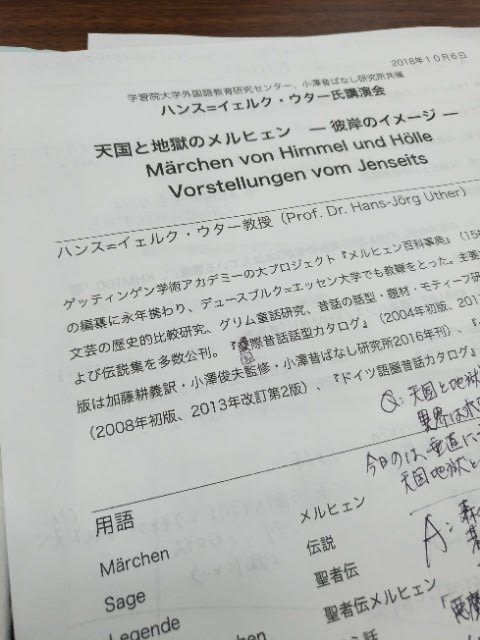 2018年10月6日
学習院大学外国語教育研究センター、小澤昔ばなし研究所共催
ハンス=イェルク・ウター氏講演会
天国と地獄のメルヒェン ― 彼岸のイメージ ―
Märchen von Himmel und Hölle
Vorstellungen vom Jenseits
ハンス=イェルク・ウター教授（Prof. Dr. Hans-Jörg Uther）
ゲッティンゲン学術アカデミーの大プロジェクト『メルヒェン百科事典』（15
の編纂に永年携わり、デュースブルク=エッセン大学でも教鞭をとった。主要
文芸の歴史的比較研究、グリム童話研究、昔話の話型・題材・モティーフ研
よび伝説集を多数公刊。『国際昔話話型カタログ』（2004年初版、201
版は加藤耕義訳・小澤俊夫監修・小澤昔ばなし研究所2016年刊）、『
（2008年初版、2013年改訂第2版）、『ドイツ語圏昔話カタログ』
Q: 天国と地獄
異界は水
今日のは、垂直に
天国地獄と
用語
Märchen メルヒェン
Sage 伝説
Legende 聖者伝
聖者伝メルヒェン
A: